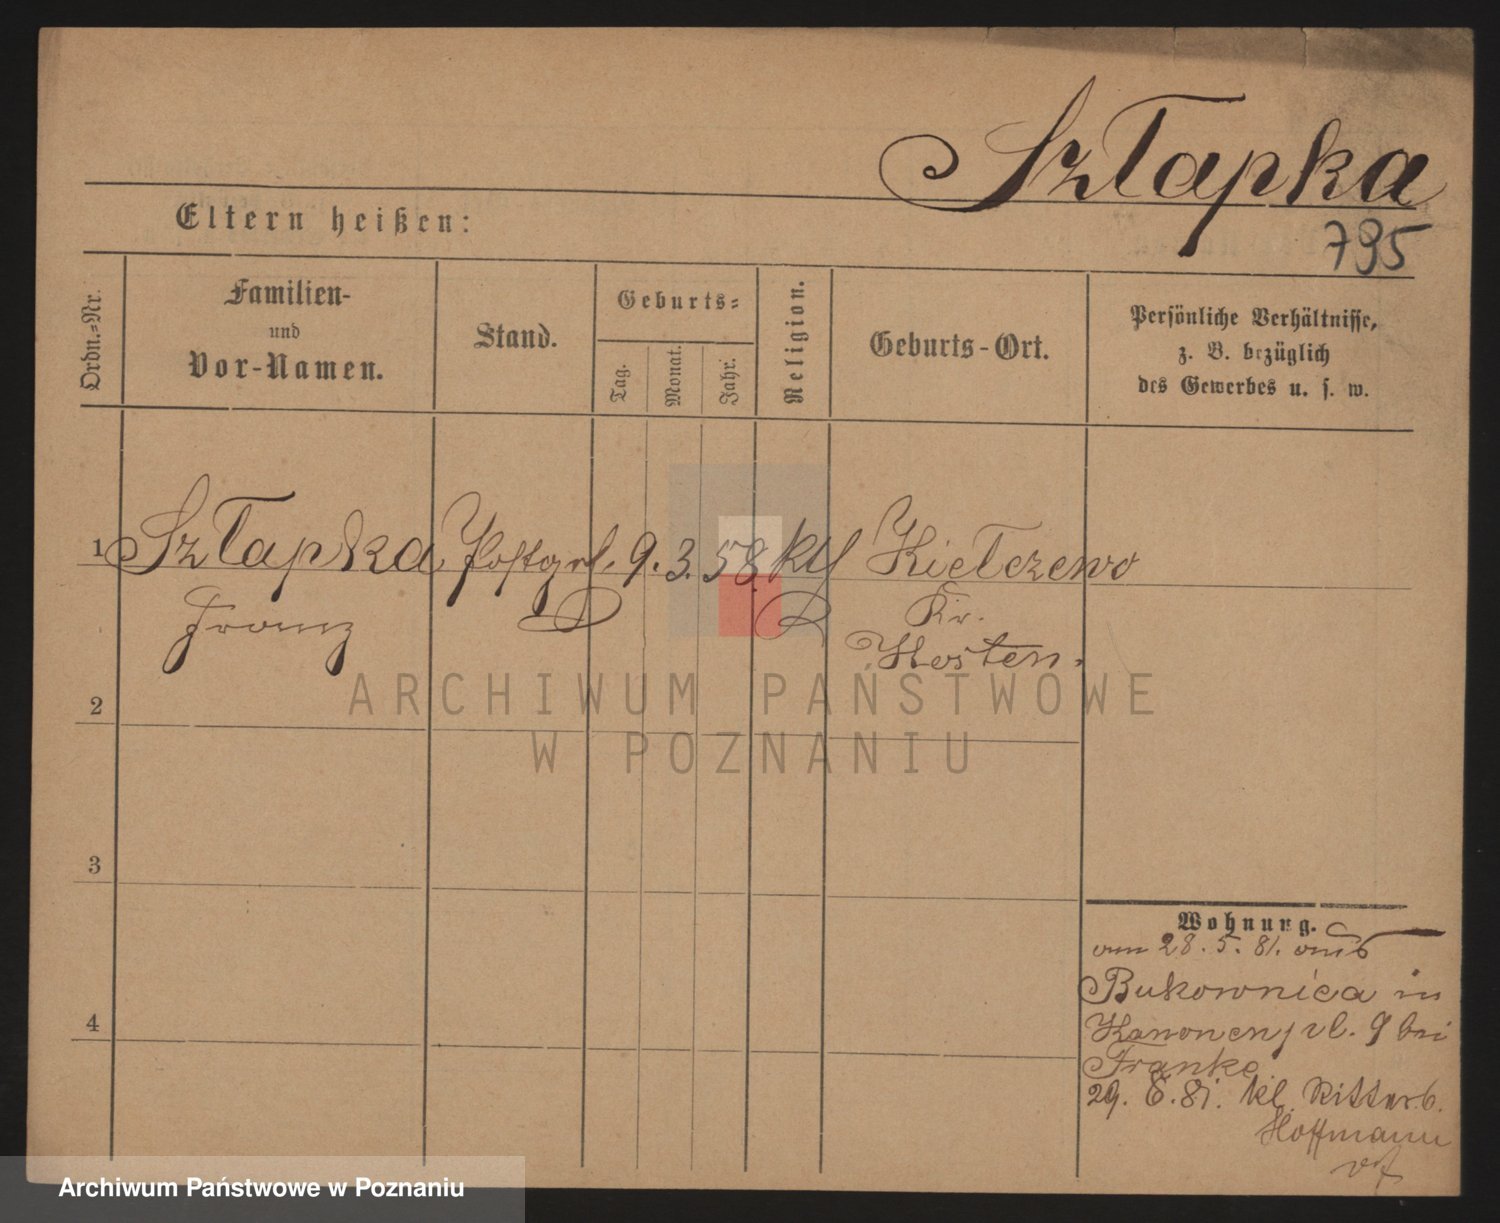 Sztapka
795
Eltern heißen:
Ordn.-Nr.
Familien-
und
Vor-Namen.
Stand.
Geburts-
Tag.
Monat.
Jahr.
Religion.
Geburts-Ort.
Persönliche Verhältnisse,
z. B. bezüglich
des Gewerbes u. s. w.
1 Sztapka 9. 3. 58. kth Kietczewo
Franz Kr.
Kosten.
2
3
4
Wohnung.
am 28. 5. 81. aus
Bukownica in
Kanonenpl. 9 bei
Franke
29. 6. 81. kl. Ritterstr. 6.
Hoffmann
ARCHIWUM PAŃSTWOWE
W POZNANIU
Archiwum Państwowe w Poznaniu